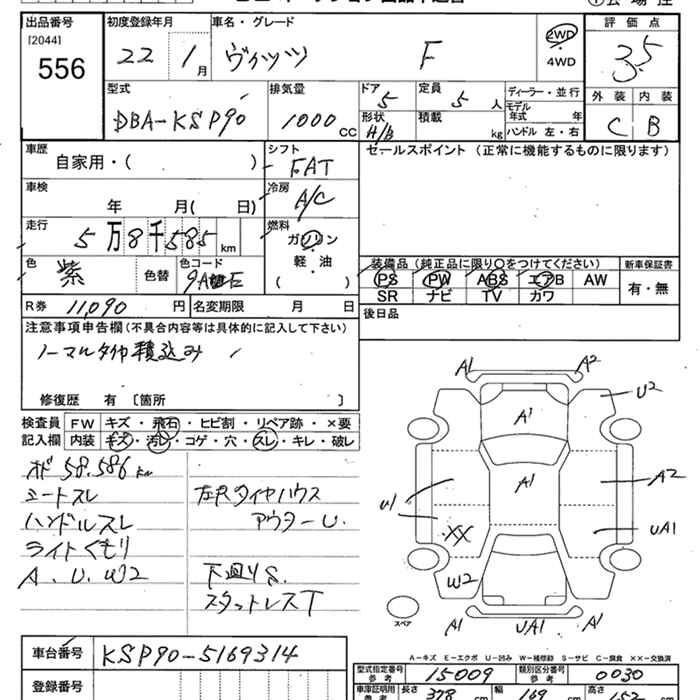 出品番号 [2044] 556
初度登録年月 22 1月
車名・グレード ヴィッツ F
2WD
4WD
評価点 3.5
型式 DBA-KSP90
排気量 1000 cc
ドア 5
形状 H/B
定員 5 人
積載 kg
ディーラー・並行
モデル年式 年
ハンドル 左・右
外装 C
内装 B
車歴 自家用・( )
シフト FAT
セールスポイント (正常に機能するものに限ります)
車検 年 月( 日)
冷房 A/C
走行 5万8千585km
燃料 ガソリン
軽・油
( )
色 紫 色替
色コード
装備品 (純正品に限り○をつけてください)
新車保証書
PS PW ABS エアB AW
SR ナビ TV カワ
有・無
R券 11,090 円
名変期限 月 日
後日品
注意事項申告欄(不具合内容等は具体的に記入して下さい)
ノーマルタイヤ積込み
修復歴 有 〔箇所 〕
検査員記入欄
FW キズ・飛石・ヒビ割・リペア跡・×要
内装 キズ・汚レ・コゲ・穴・スレ・キレ・破レ
オド 58.586 km
シートスレ
ハンドルスレ
ライトくもり
A. U. W2
左Rタイヤハウス
アウターU.
下廻りS.
スタットレスT
A1 A2
U2
A1
A1
A2
U1
XX
UA1
W2
A1 UA1 A1
スペア
A-キズ E-エクボ U-凹み W-補修跡 S-サビ C-腐食 ××-交換済
車台番号 KSP90-5169314
登録番号
型式指定番号 参考 15009
類別区分番号 参考 0030
車庫証明用 参考 長さ 378 cm 幅 169 cm 高さ 152 cm